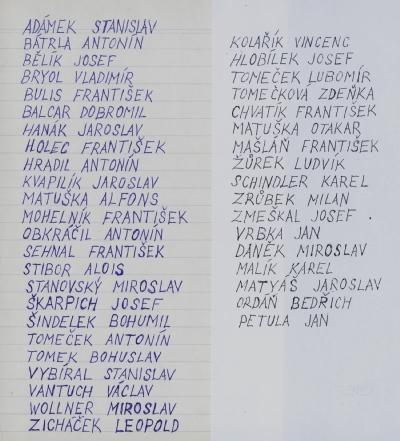 ADÁMEK STANISLAV
BÁTRLA ANTONÍN
BĚLÍK JOSEF
BRYOL VLADIMÍR
BULIS FRANTIŠEK
BALCAR DOBROMIL
HANÁK JAROSLAV
HOLEC FRANTIŠEK
HRADIL ANTONÍN
KVAPILÍK JAROSLAV
MATUŠKA ALFONS
MOHELNÍK FRANTIŠEK
OBKRÁČIL ANTONÍN
SEHNAL FRANTIŠEK
STIBOR ALOIS
STANOVSKÝ MIROSLAV
ŠKARPICH JOSEF
ŠINDELEK BOHUMIL
TOMEČEK ANTONÍN
TOMEK BOHUSLAV
VYBÍRAL STANISLAV
VANTUCH VÁCLAV
WOLLNER MIROSLAV
ZICHÁČEK LEOPOLD
KOLAŘÍK VINCENC
HLOBÍLEK JOSEF
TOMEČEK LUBOMÍR
TOMEČKOVÁ ZDEŇKA
CHVATÍK FRANTIŠEK
MATUŠKA OTAKAR
MAŠLÁŇ FRANTIŠEK
ŽŮREK LUDVÍK
SCHINDLER KAREL
ZRŮBEK MILAN
ZMEŠKAL JOSEF .
VRBKA JAN
DANĚK MIROSLAV
MALÍK KAREL
MATYÁŠ JAROSLAV
ORDÁŇ BEDŘICH
PETULA JAN